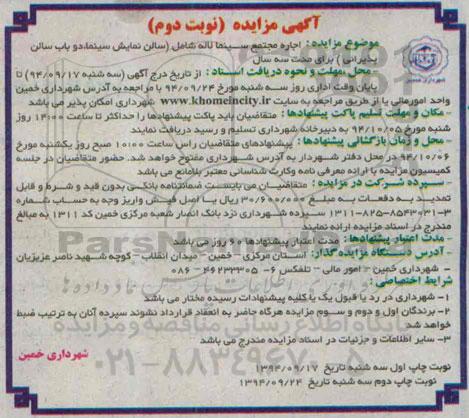 آگهی مزایده (نوبت دوم)
شهرداری خمین
موضوع مزایده : اجاره مجتمع سینما لاله شامل (سالن نمایش سینما،دو باب سالن
پذیرائی ) برای مدت سه سال
محل ،مهلت و نحوه دریافت اسناد : از تاریخ درج آگهی (سه شنبه ۹۴/۰۹/۱۷) تا
پایان وقت اداری روز سه شنبه مورخ ۹۴/۰۹/۲۴ با مراجعه به آدرس شهرداری خمین
واحد امورمالی یا از طریق مراجعه به سایت www.khomeincity.ir شهرداری امکان پذیر می باشد
- مکان و مهلت تسلیم پاکت پیشنهادها : متقاضیان باید پاکت پیشنهادها را حداکثر تا ساعت ۱۴:۰۰ روز
شنبه مورخ ۹۴/۱۰/۰۵ به دبیرخانه شهرداری تسلیم و رسید دریافت نمایند
- محل و زمان بازگشائی پیشنهادها : پیشنهادهای متقاضیان راس ساعت ۱۰:۰۰ صبح روز یکشنبه مورخ
۹۴/۱۰/۰۶ در محل دفتر شهردار به آدرس شهرداری مفتوح خواهد شد. حضور متقاضیان در جلسه
کمیسیون مزایده با ارائه معرفی نامه وکارت شناسائی معتبر بلامانع می باشد
- سپرده شرکت در مزایده : متقاضیان می بایست ضمانتنامه بانکی بدون قید و شرط و قابل
تمدید به دفعات به مبلغ ۳۰/۶۰۰/۰۰۰ ریال یا اصل فیش واریز وجه به حساب شماره
۱۳۱۱-۸۲۵-۸۵۴۳۰۳۱-۳ سپرده شهرداری نزد بانک انصار شعبه مرکزی خمین کد ۱۳۱۱ به مبالغ
مندرج در اسناد مزایده ارائه نمایند
- مدت اعتبار پیشنهادها : مدت اعتبار پیشنهادها ۶۰ روز می باشد
- آدرس دستگاه مزایده گذار: استان مرکزی - خمین - میدان انقلاب - کوچه شهید ناصر عزیزیان
- شهرداری خمین - امور مالی - تلفکس ۶- ۴۶۲۳۳۳۰۵ - ۰۸۶
شرایط اختصاصی :
۱- شهرداری در رد یا قبول یک یا کلیه پیشنهادات رسیده مختار می باشد
۲- برندگان اول و دوم و سوم مزایده هرگاه حاضر به انعقاد قرارداد نشوند سپرده آنان به ترتیب ضبط
خواهد شد
۳- سایر اطلاعات و جزئیات در اسناد مزایده مندرج می باشد
شهرداری خمین
نوبت چاپ اول سه شنبه تاریخ ۱۳۹۴/۰۹/۱۷
نوبت چاپ دوم سه شنبه تاریخ ۱۳۹۴/۰۹/۲۴
پایگاه اطلاع رسانی مناقصه و مزایده
۰۲۱-۸۸۳۴۹۶۷۰-۵